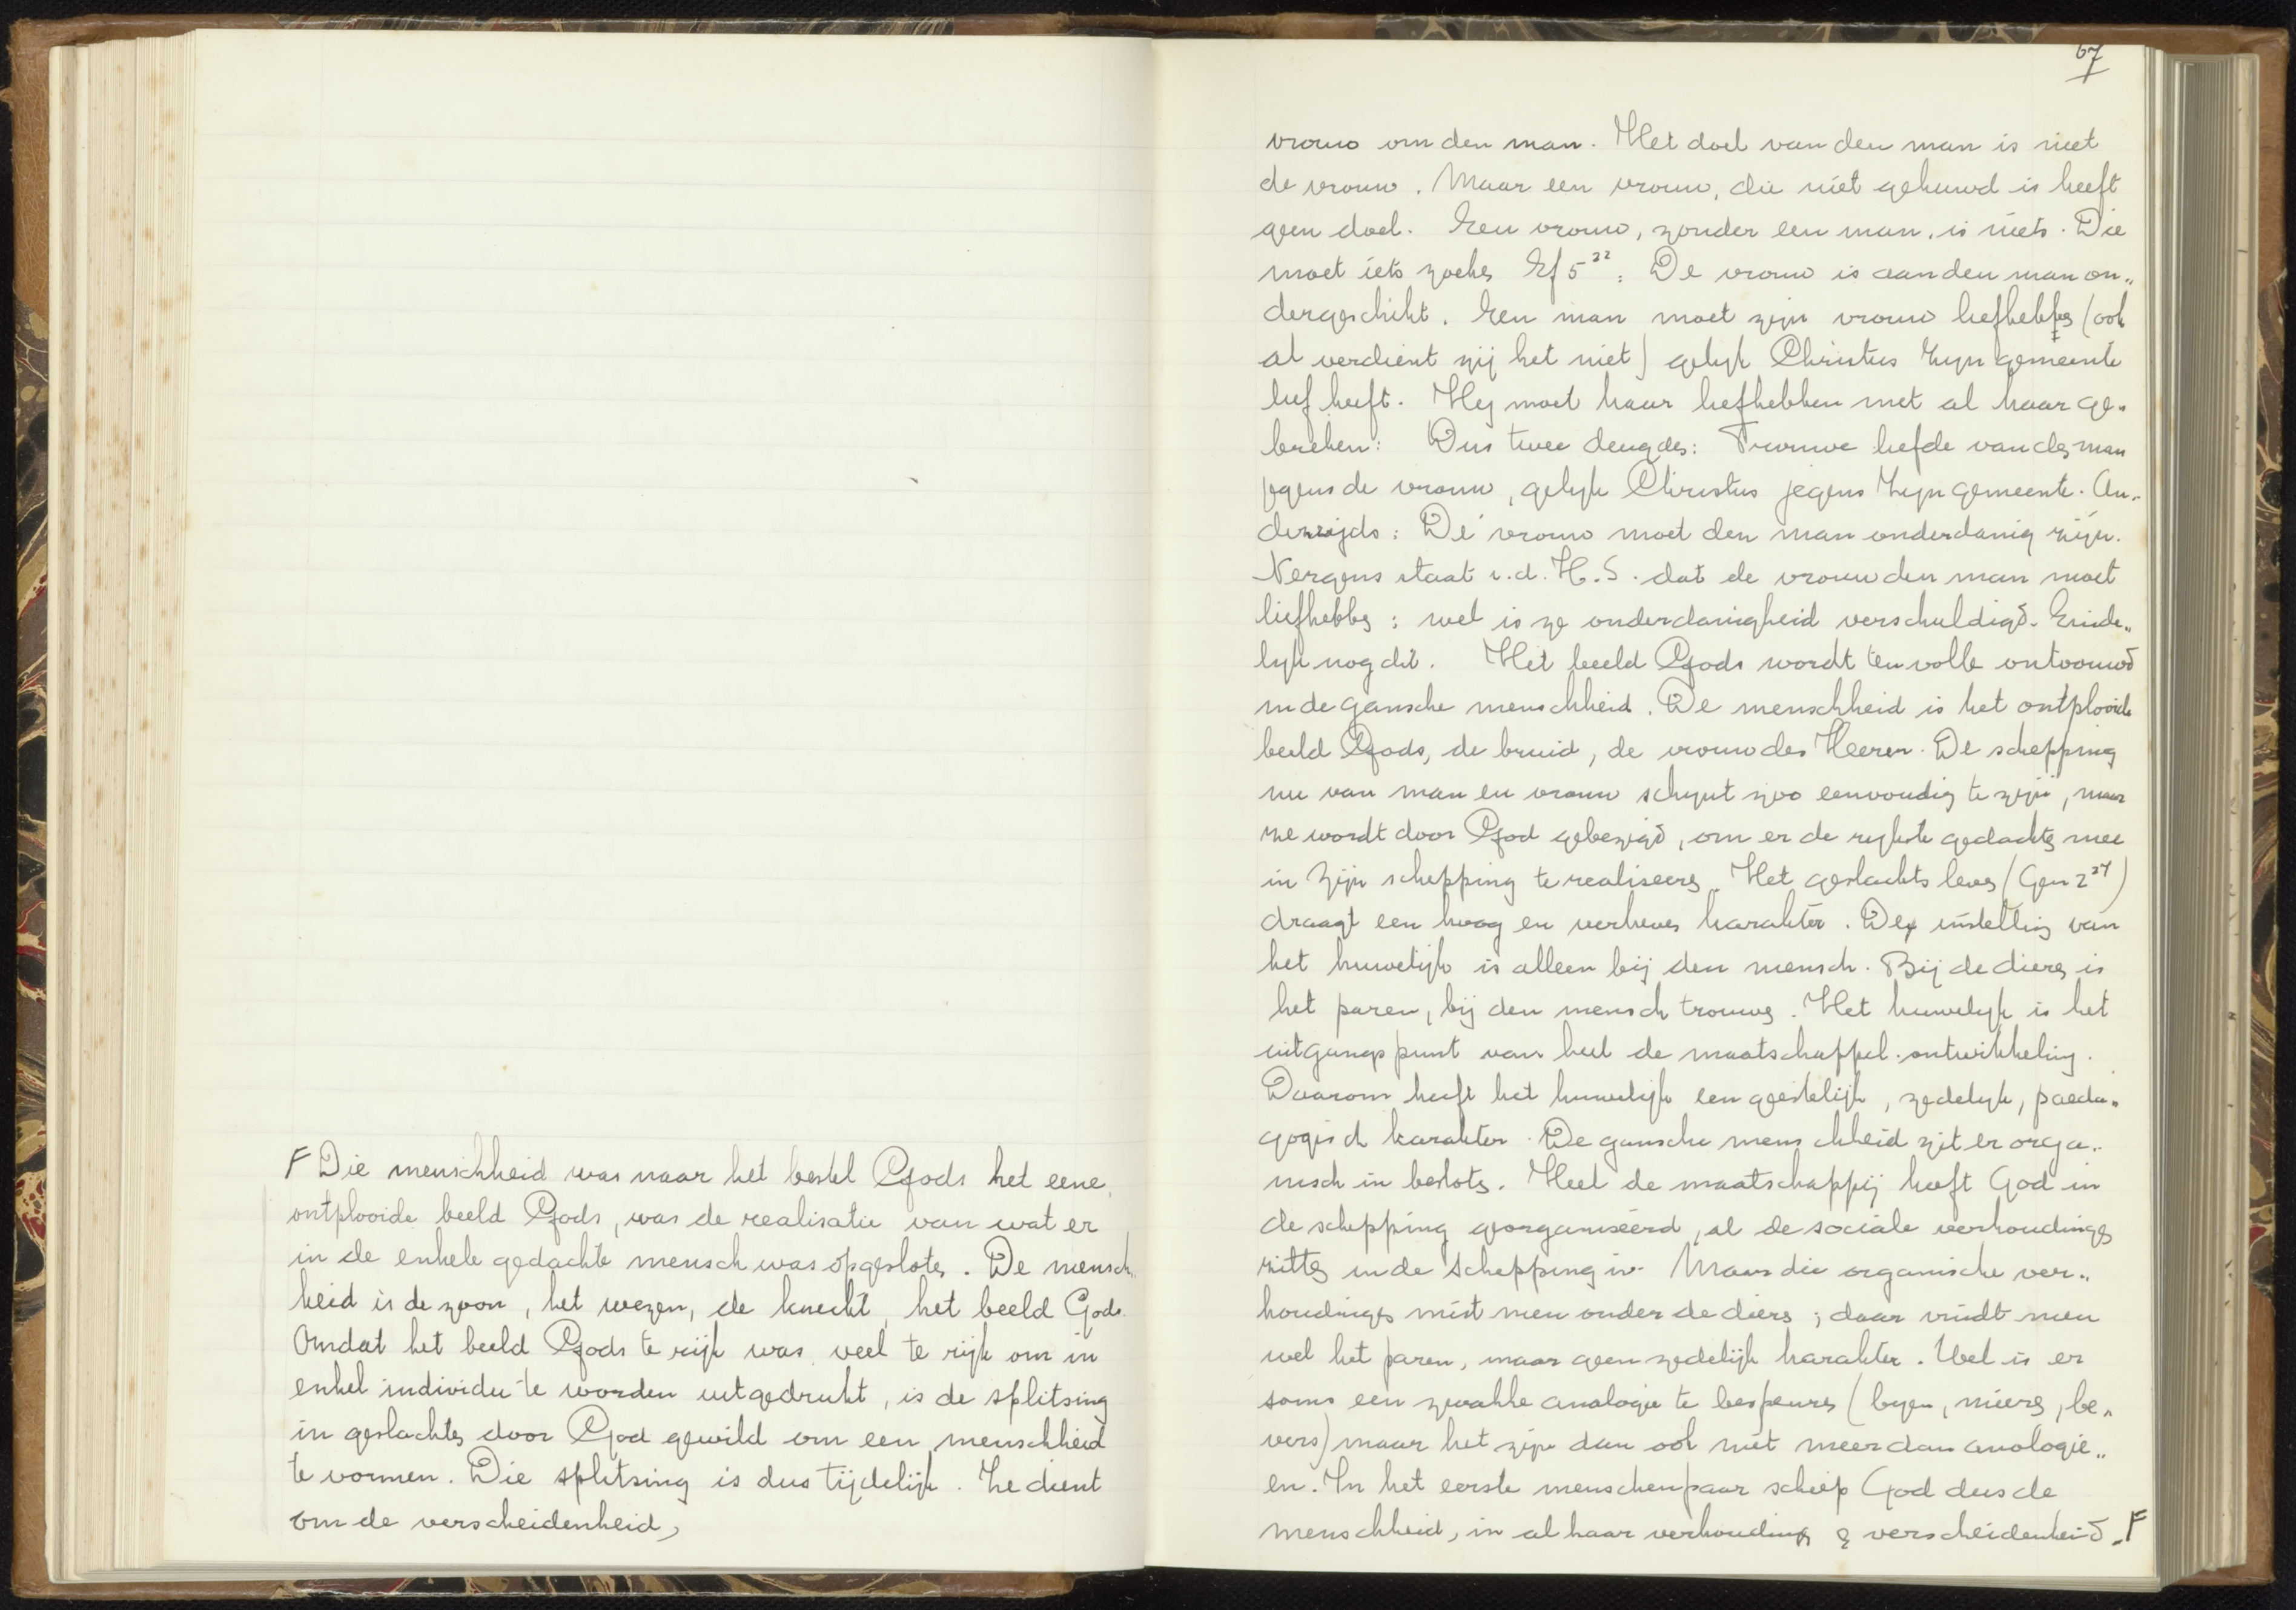 F Die menschheid was naar het bestel Gods het eene,
ontplooide beeld Gods, was de realisatie van wat er
in de enkele gedachte mensch was opgesloten. De mensch„
heid is de zoon, het wezen, de knecht, het beeld Gods.
Omdat het beeld Gods te rijk was, veel te rijk om in
enkel individu te worden uitgedrukt, is de splitsing
in geslachten door God gewild om een menschheid
te vormen. Die splitsing is dus tijdelijk. Ze dient
om de verscheidenheid,
67
vrouw om den man. Het doel van den man is niet
de vrouw. Maar een vrouw, die niet gehuwd is heeft
geen doel. Een vrouw, zonder een man, is niets. Die
moet iets zoeken Ef 5²²: De vrouw is aan den man on„
dergeschikt. Een man moet zijn vrouw liefhebben (ook
al verdient zij het niet) gelijk Christus Zijn gemeente
lief heeft. Hij moet haar liefhebben met al haar ge„
breken: Dus twee deugden: Trouwe liefde van den man
jegens de vrouw, gelijk Christus jegens Zijn gemeente. An„
derzijds: De vrouw moet den man onderdanig zijn.
Nergens staat i.d. H.S. dat de vrouw den man moet
liefhebben; wel is ze onderdanigheid verschuldigd. Einde„
lijk nog dit. Het beeld Gods wordt ten volle ontvouwd
in de gansche menschheid. De menschheid is het ontplooide
beeld Gods, de bruid, de vrouw des Heeren. De schepping
nu van man en vrouw schijnt zoo eenvoudig te zijn, maar
ze wordt door God gebezigd, om er de rijkste gedachten mee
in Zijn schepping te realiseeren. Het geslachts leven (Gen 2²⁴)
draagt een hoog en verheven karakter. De instelling van
het huwelijk is alleen bij den mensch. Bij de dieren is
het paren, bij den mensch trouwen. Het huwelijk is het
uitgangspunt van heel de maatschappel. ontwikkeling.
Daarom heeft het huwelijk een geestelijk, zedelijk, paeda„
gogisch karakter. De gansche menschheid zit er orga„
nisch in besloten. Heel de maatschappij heeft God in
de schepping georganiseerd, al de sociale verhoudingen
zitten in de schepping in. Maar die organische ver„
houdingen mist men onder de dieren; daar vindt men
wel het paren, maar geen zedelijk karakter. Wel is er
soms een zwakke analogie te bespeuren (bijen, mieren, be„
vers) maar het zijn dan ook niet meer dan analogie„
en. In het eerste menschenpaar schiep God dus de
menschheid, in al haar verhoudingen & verscheidenheid. F